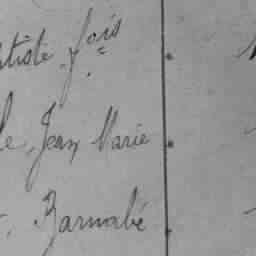 tiste fois
le Jean Marie
Barnabé